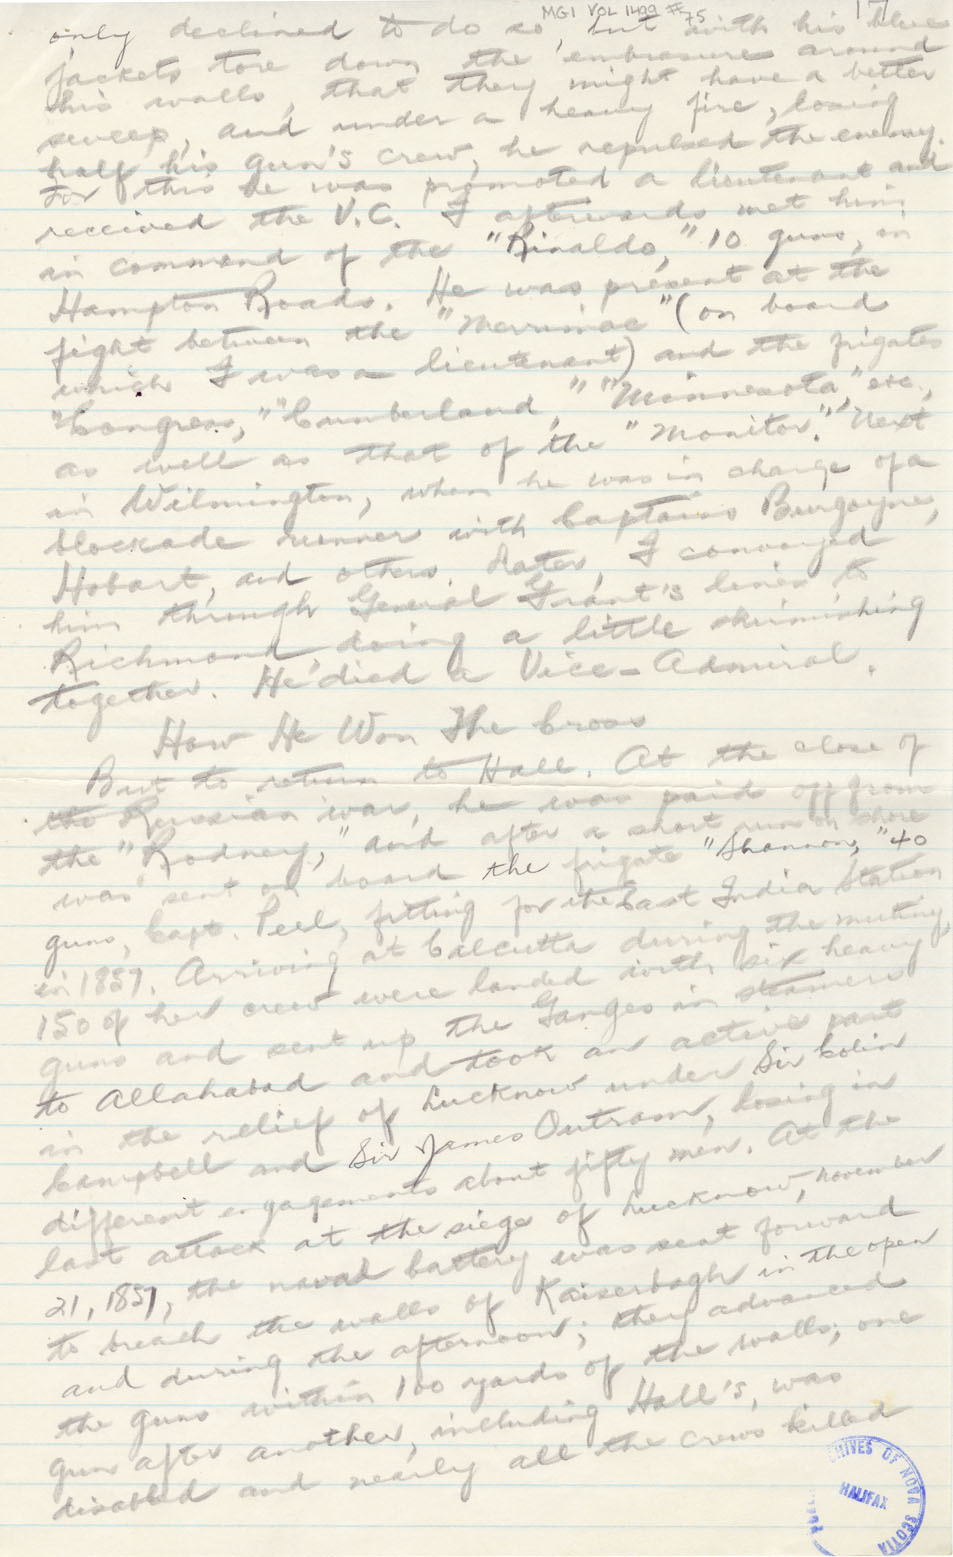 MG1 VOL 1499 #75
17
only declined to do so, but with his blue
jackets tore down the embrasure around
his walls, that they might have a better
sweep, and under a heavy fire, losing
half his gun's crew, he repulsed the enemy.
For this he was promoted a lieutenant and
received the V.C. I afterwards met him
in command of the "Rinaldo," 10 guns, in
Hampton Roads. He was present at the
fight between the "Merrimac" (on board
which I was a lieutenant) and the frigates
"Congress," "Cumberland," "Minnesota," etc.,
as well as that of the "Monitor." Next
in Wilmington, when he was in charge of a
blockade runner with Captains Burgoyne,
Hobart, and others. Later, I convoyed
him through General Grant's lines to
Richmond doing a little skirmishing
together. He died a Vice-Admiral.
How He Won The Cross
But to return to Hall. At the close of
the Russian war, he was paid off from
the "Rodney," and after a short run on shore
was sent on board the frigate "Shannon," 40
guns, Capt. Peel, fitting for the East India Station
in 1857. Arriving at Calcutta during the mutiny,
150 of her crew were landed with six heavy
guns and sent up the Ganges in steamers
to Allahabad and took an active part
in the relief of Lucknow under Sir Colin
Campbell and Sir James Outram, losing in
different engagements about fifty men. At the
last attack at the siege of Lucknow, November
21, 1857, the naval battery was sent forward
to breach the walls of Kaiserbagh in the open
and during the afternoon; they advanced
the guns within 100 yards of the walls; one
gun after another, including Hall's, was
disabled and nearly all the crews killed
ARCHIVES OF NOVA SCOTIA
HALIFAX